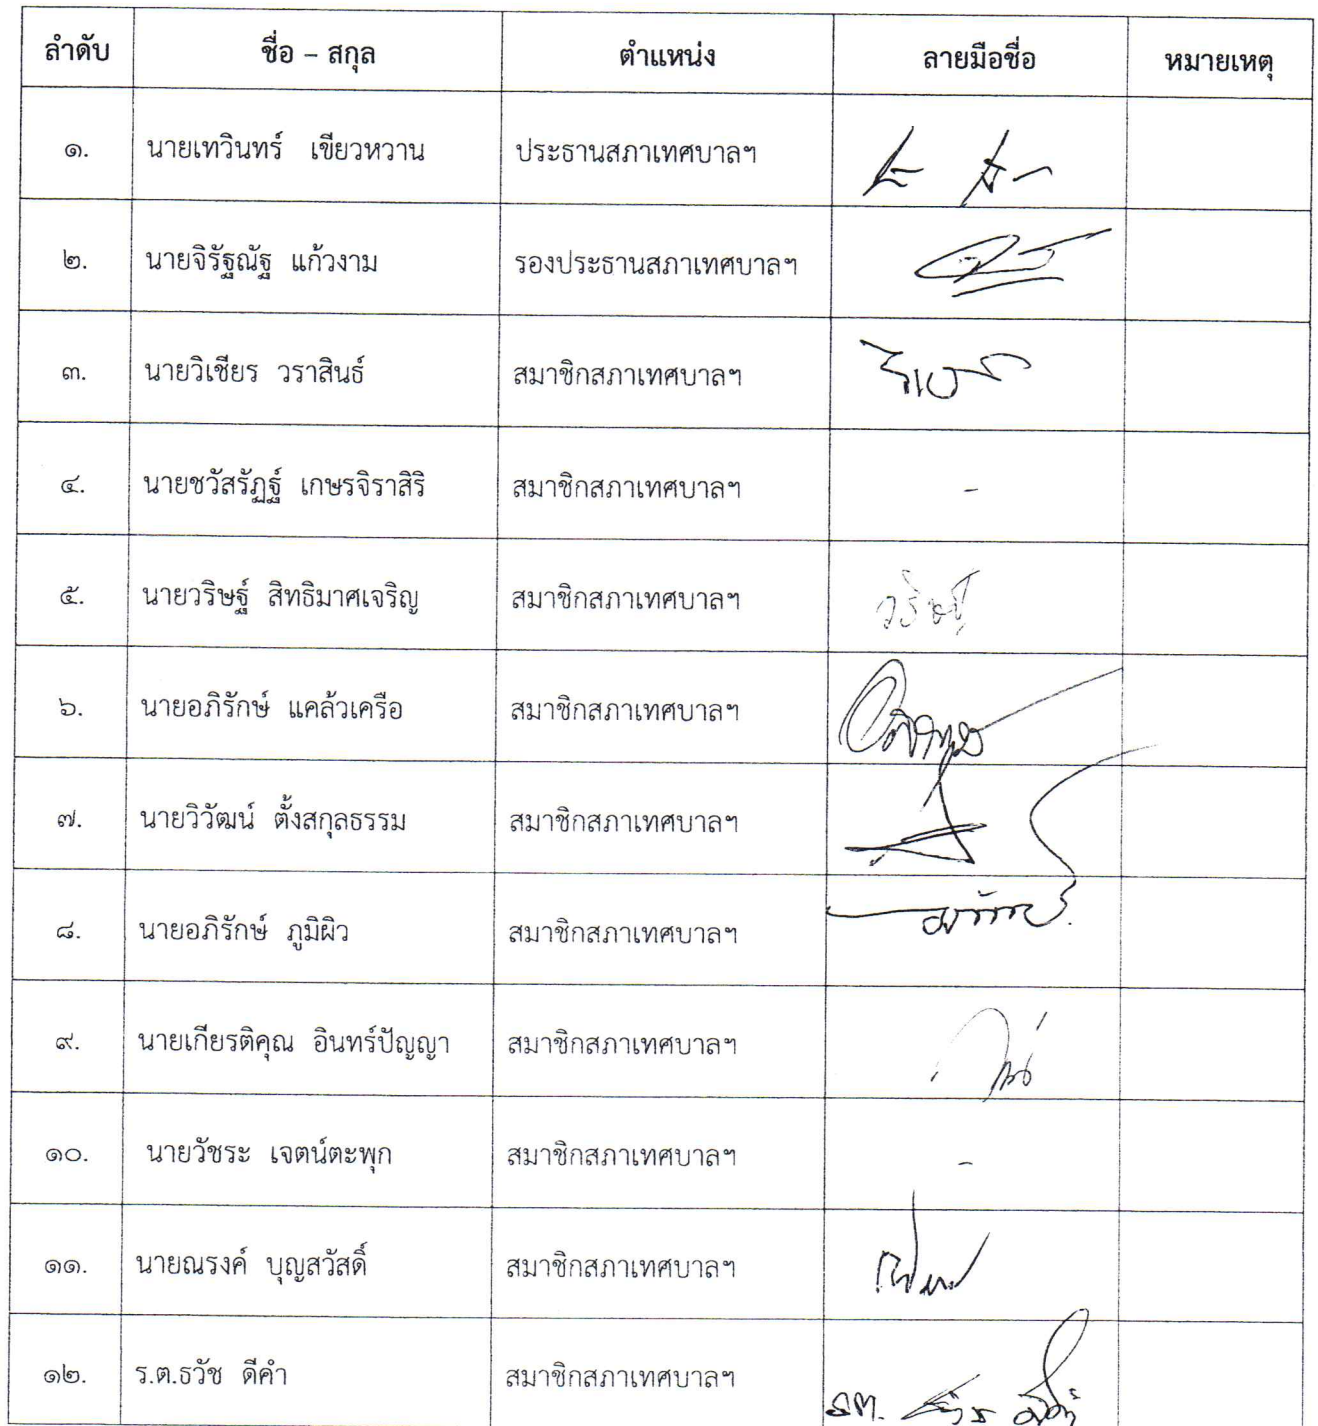 ลำดับ ชื่อ – สกุล ตำแหน่ง ลายมือชื่อ หมายเหตุ
๑. นายเทวินทร์ เขียวหวาน ประธานสภาเทศบาลฯ
๒. นายจิรัฐณัฐ แก้วงาม รองประธานสภาเทศบาลฯ
๓. นายวิเชียร วราสินธ์ สมาชิกสภาเทศบาลฯ
๔. นายชวัสรัฏฐ์ เกษรจิราสิริ สมาชิกสภาเทศบาลฯ -
๕. นายวริษฐ์ สิทธิมาศเจริญ สมาชิกสภาเทศบาลฯ วริษฐ์
๖. นายอภิรักษ์ แคล้วเครือ สมาชิกสภาเทศบาลฯ
๗. นายวิวัฒน์ ตั้งสกุลธรรม สมาชิกสภาเทศบาลฯ
๘. นายอภิรักษ์ ภูมิผิว สมาชิกสภาเทศบาลฯ
๙. นายเกียรติคุณ อินทร์ปัญญา สมาชิกสภาเทศบาลฯ
๑๐. นายวัชระ เจตน์ตะพุก สมาชิกสภาเทศบาลฯ -
๑๑. นายณรงค์ บุญสวัสดิ์ สมาชิกสภาเทศบาลฯ
๑๒. ร.ต.ธวัช ดีคำ สมาชิกสภาเทศบาลฯ